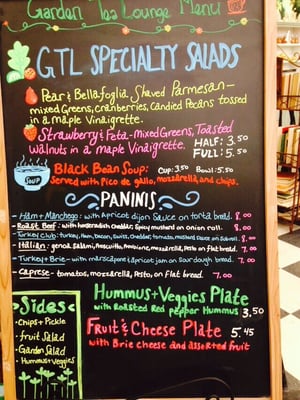 Garden Tea Lounge Menu
GTL SPECIALTY SALADS
Pear & Bellafoglia, Shaved Parmesan-
mixed Greens, cranberries, Candied Pecans tossed
in a maple Vinaigrette.
Strawberry & Feta - mixed Greens, Toasted
walnuts in a maple Vinaigrette. HALF: 3.50
FULL: 5.50
SOUP
Black Bean Soup: Cup: 3.50 Bowl: 5.50
Served with Pico de gallo, mozzarella, and chips.
PANINIS
- Ham + Manchego: with apricot dijon sauce on torta bread. 8.00
- Roast Beef: with horseradish cheddar, Spicy mustard on onion roll. 8.00
- Turkey club: Turkey, Ham, bacon, Swiss, cheddar, tomato, mustard sauce on 8.00
- Italian: genoa salami, mozzarella, Pesto, on flat bread. 7.00
- Turkey + Brie - with marscapone & apricot jam on sour dough bread. 7.00
- Caprese - tomatoes, mozzarella, Pesto, on flat bread. 7.00
Sides
- Chips + Pickle
- fruit Salad
- Garden Salad
- Hummus + Veggies
Hummus + Veggies Plate
with Roasted Red pepper Hummus 3.50
Fruit & Cheese Plate 5.45
with Brie cheese and assorted fruit